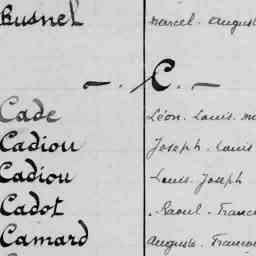 Busnel Marcel. Auguste
— . C . —
Cade Léon. Louis.
Cadiou Joseph. Louis
Cadiou Louis. Joseph
Cadot Raoul.
Camard Auguste.